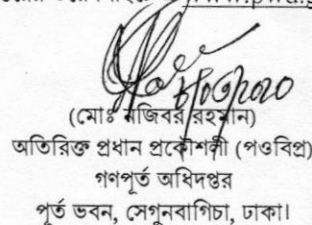 (মোঃ নজিবর রহমান)
অতিরিক্ত প্রধান প্রকৌশলী (পওবিপ্র)
গণপূর্ত অধিদপ্তর
পূর্ত ভবন, সেগুনবাগিচা, ঢাকা।